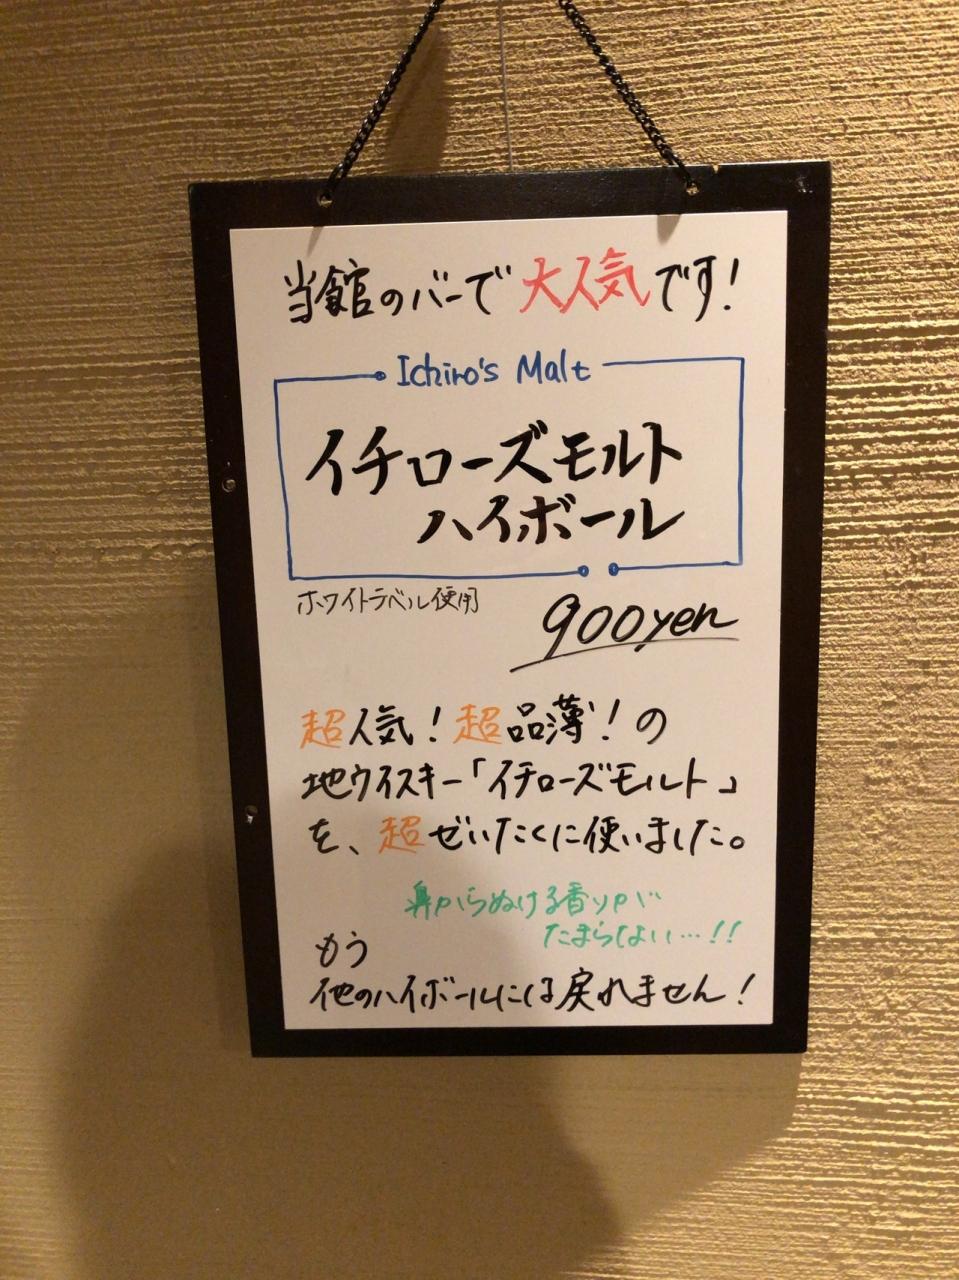 当館のバーで大人気です!
Ichiro's Malt
イチローズモルト
ハイボール
ホワイトラベル使用
900yen
超人気!超品薄!の
地ウイスキー「イチローズモルト」
を、超ぜいたくに使いました。
鼻からぬける香りが
たまらない…!!
もう
他のハイボールには戻れません!